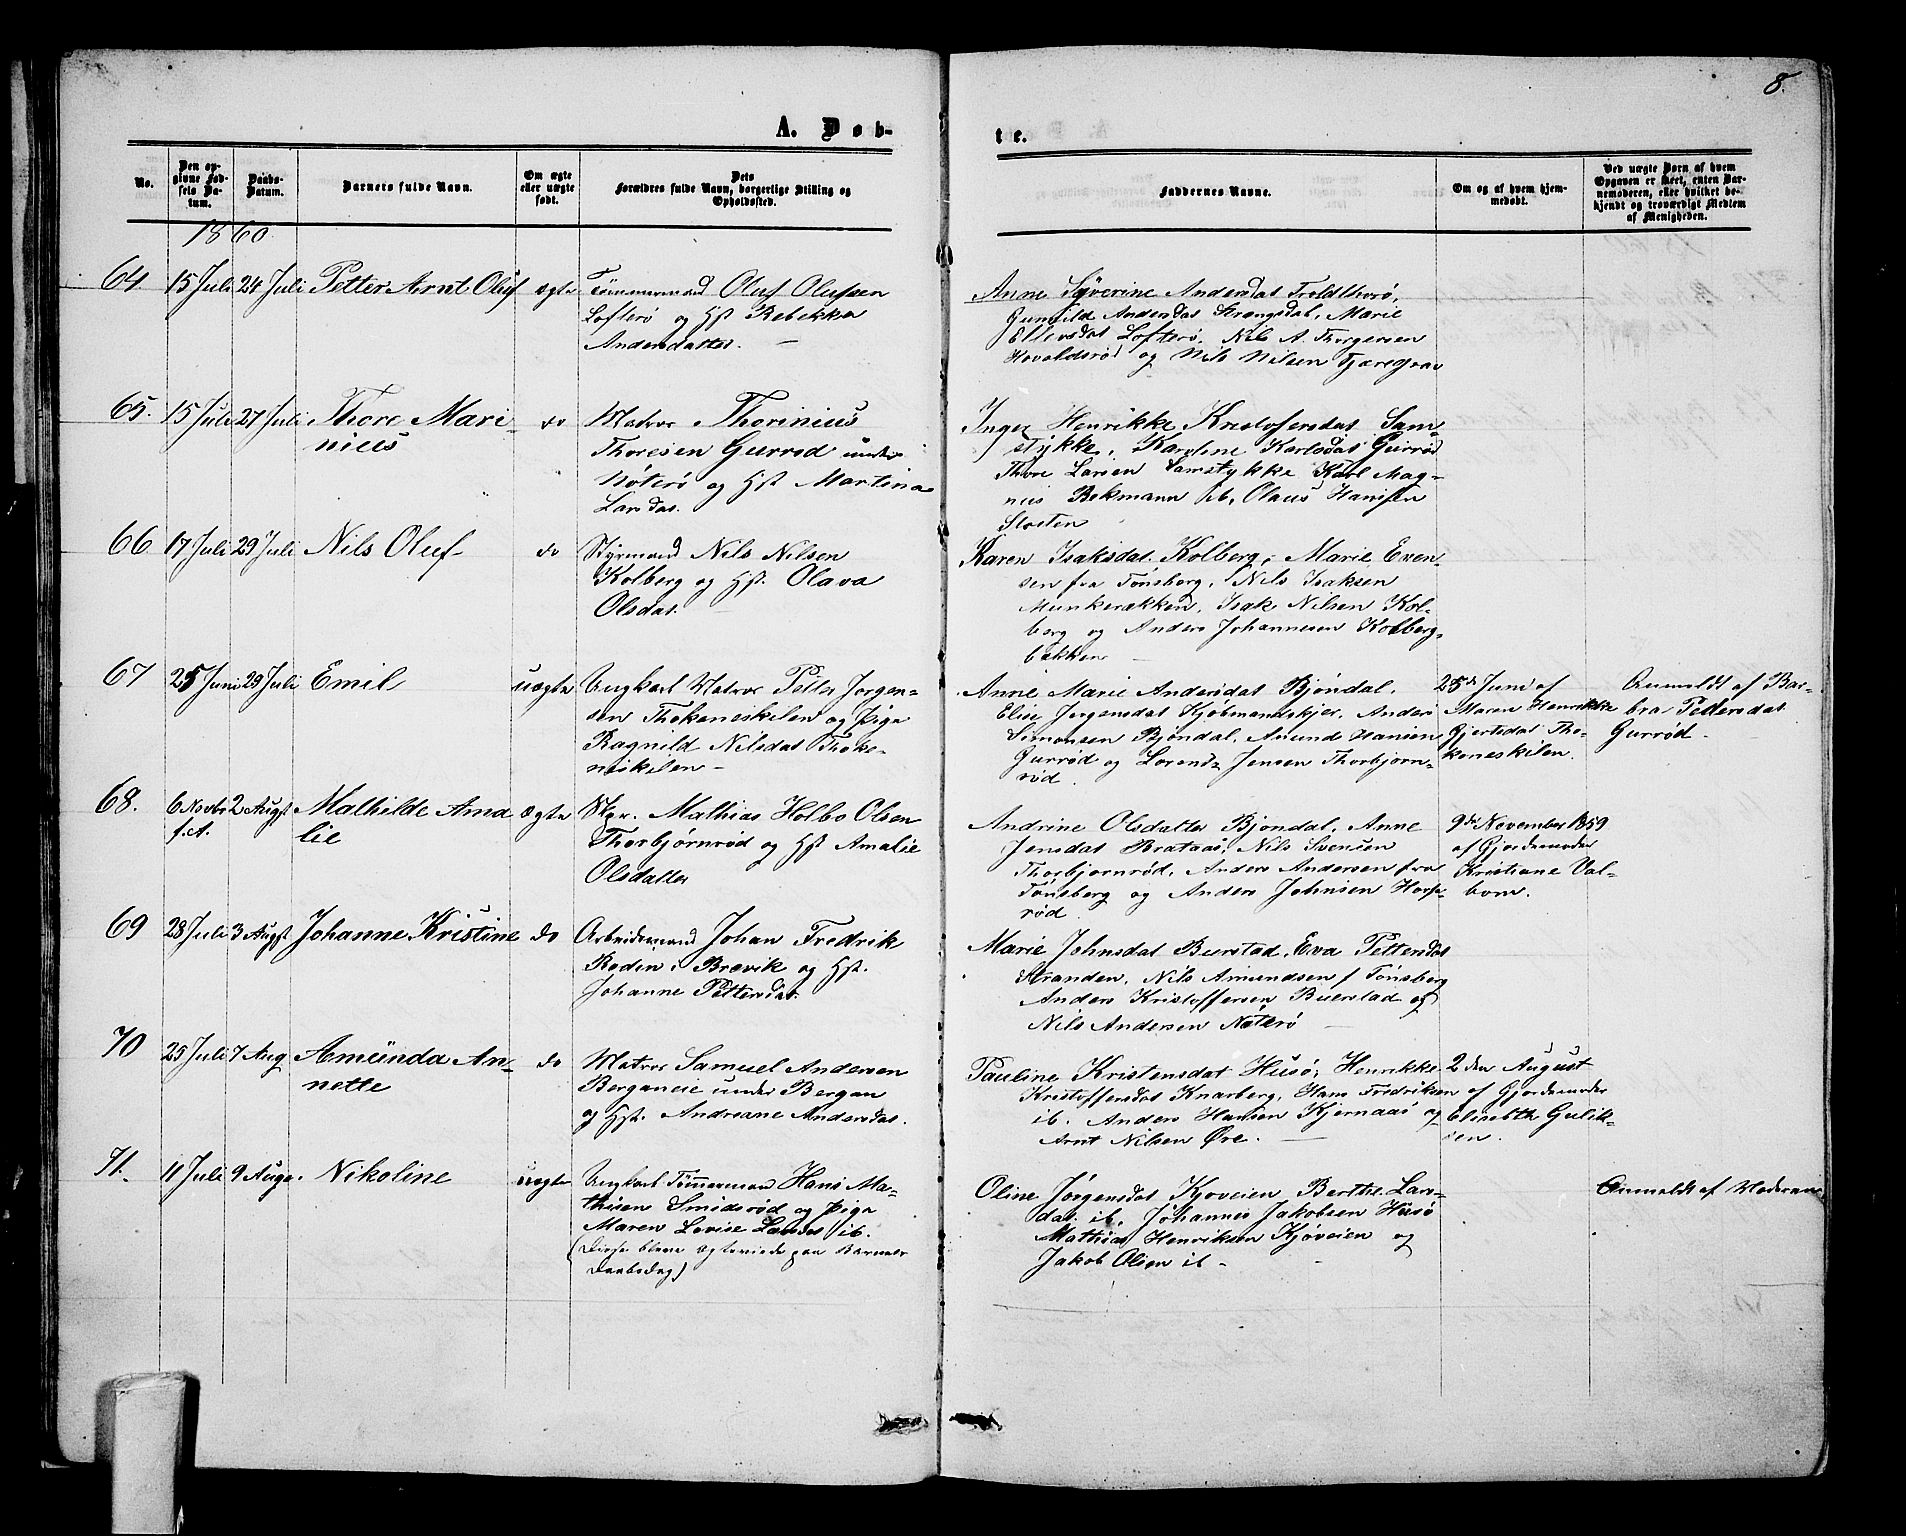 8.
A. Døb-
te.
No.
Den op-
givne Fød-
sels Da-
tum.
Daabs-
Datum.
Barnets fulde Navn.
Om ægte
eller uægte
født.
Dets
Forældres fulde Navn, borgerlige Stilling og
Opholdssted.
Faddernes Navne.
Om og af hvem hjem-
medøbt.
Ved uægte Børn af hvem
Opgaven er skeet, enten Bar-
nemoderen, eller hvilket be-
kjendt og troværdigt Medlem
af Menigheden.
1860
64 15 Juli 24 Juli Petter Arnt Oluf ægte
Tømmermand Oluf Olufsen
Lofterø og Hst Rebekka
Andersdatter. —
Anne Syverine Andersdat Troldthorø,
Gunhild Andersdat Strengsdal, Marie
Ellevsdat Lofterø, Nils A. Thorgersen
Hovaldsrød og Nils Nilsen Tjæregrav
65. 15 Juli 27 Juli Thore Mari-
nius
do
Matros Thorinius
Thoresen Gurrød under
Nøterø og Hst Martina
Larsdat.
Inger Henrikke Kristofersdat Sam-
stykke, Karoline Karlsdat Gurrød
Thore Larsen Samstykke Karl Mag-
nus Bekmann ib, Olaus Hansen
Sloften
66 17 Juli 29 Juli Nils Oluf
do
Styrmand Nils Nilsen
Kolberg og Hst. Olava
Olsdat.
Karen Isaksdat. Kolberg, Marie Even-
sen fra Tønsberg, Nils Isaksen
Munkerækken, Isak Nilsen Kol-
berg og Anders Johannesen Kolberg-
bakken —
67 25 Juni 29 Juli Emil
uægte
Ungkarl Matros Petter Jorgen-
sen Thokeneskilen og Pige
Ragnild Nilsdat Thoke-
neskilen —
Anne Marie Andersdat Bjøndal,
Elise Jorgensdat Kjøbmandskjer, Anders
Simonsen Bjøndal, Amund Hansen
Gurrød og Lorends Jensen Thorbjorn-
rød.
28de Juni af
Maren Henrikke
Gjertsdat Tho-
keneskilen.
Anmeldt af Bar-
bra Pedersdat
Gurrød —
68. 6 Novbr 2 Augst Mathilde Ama
f. A. lie
ægte
Skpr. Mathias Holbo Olsen
Thorbjørnrød og Hst Amalie
Olsdatter
Andrine Olsdatter Bjøndal, Anne
Jensdat Brataas, Nils Svensen
Thorbjornrød, Anders Andersen fra
Tønsberg og Anders Johnsen Horse-
rød.
9de November 1859
af Gjordemoder
Kristiane Val-
bom.
69 28 Juli 3 Augst Johanne Kristine do
Arbeidsmand Johan Fredrik
Roden, Brevik og Hst.
Johanne Pettersdat
Marie Johnsdat Buerstad, Eva Pettersdat
Stranden, Nils Amundsen f Tønsberg
Anders Kristoffersen Buerstad og
Nils Andersen Nøterø —
70 25 Juli 7 Aug Amunda An-
nette
do
Matros Samuel Andersen
Berganeie under Bergan
og Hst. Andriane Andersdat.
Pauline Kristensdat Husø, Henrikke
Kristoffersdat Knarberg, Hans Fredriksen
ib. Anders Hansen Kjernaas og
Arnt Nilsen Øre. —
2den August
af Gjordemoder
Elisabth Gulik-
sen.
71. 11 Juli 9 Augs. Nikoline
uægte
Ungkarl Tømmermand Hans Ma-
thisen Smidsrød og Pige
Maren Lovise Larsdat ib.
(Disse bleve ægteviede paa Barnets
Daabsdag)
Oline Jørgensdat Kjøveien, Berthe Lars-
dat. ib, Johannes Jakobsen Husø
Mathias Henriksen Kjøveien og
Jakob Olsen ib —
Anmeldt af Moderen